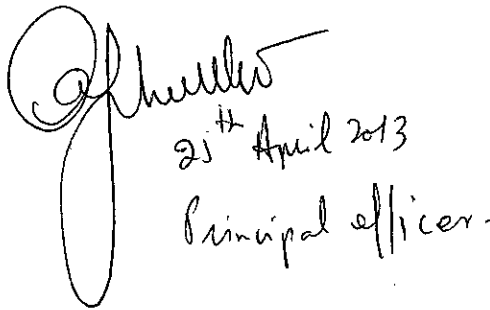 25th April 2013
Principal officer.